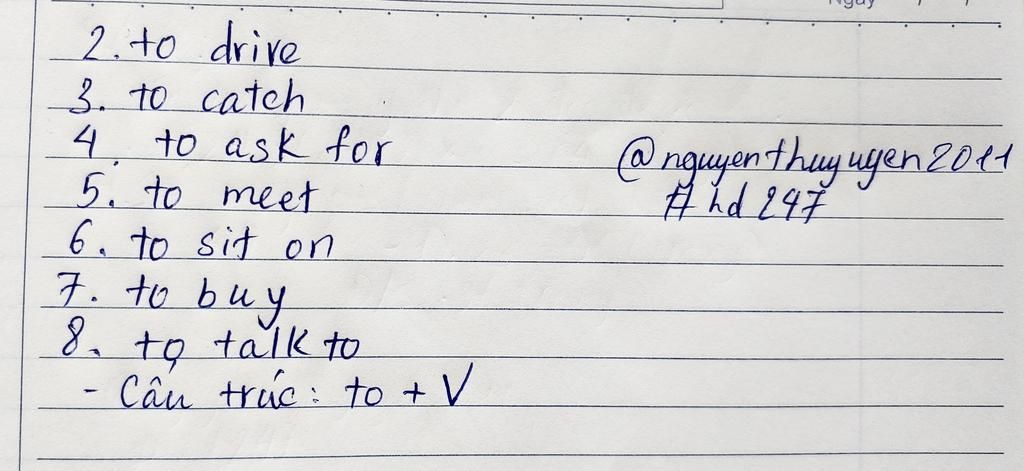 Ngày
2. to drive
3. to catch
4. to ask for
@nguyenthuyuyen2011
5. to meet
#hd247
6. to sit on
7. to buy
8. to talk to
- Cấu trúc: to + V